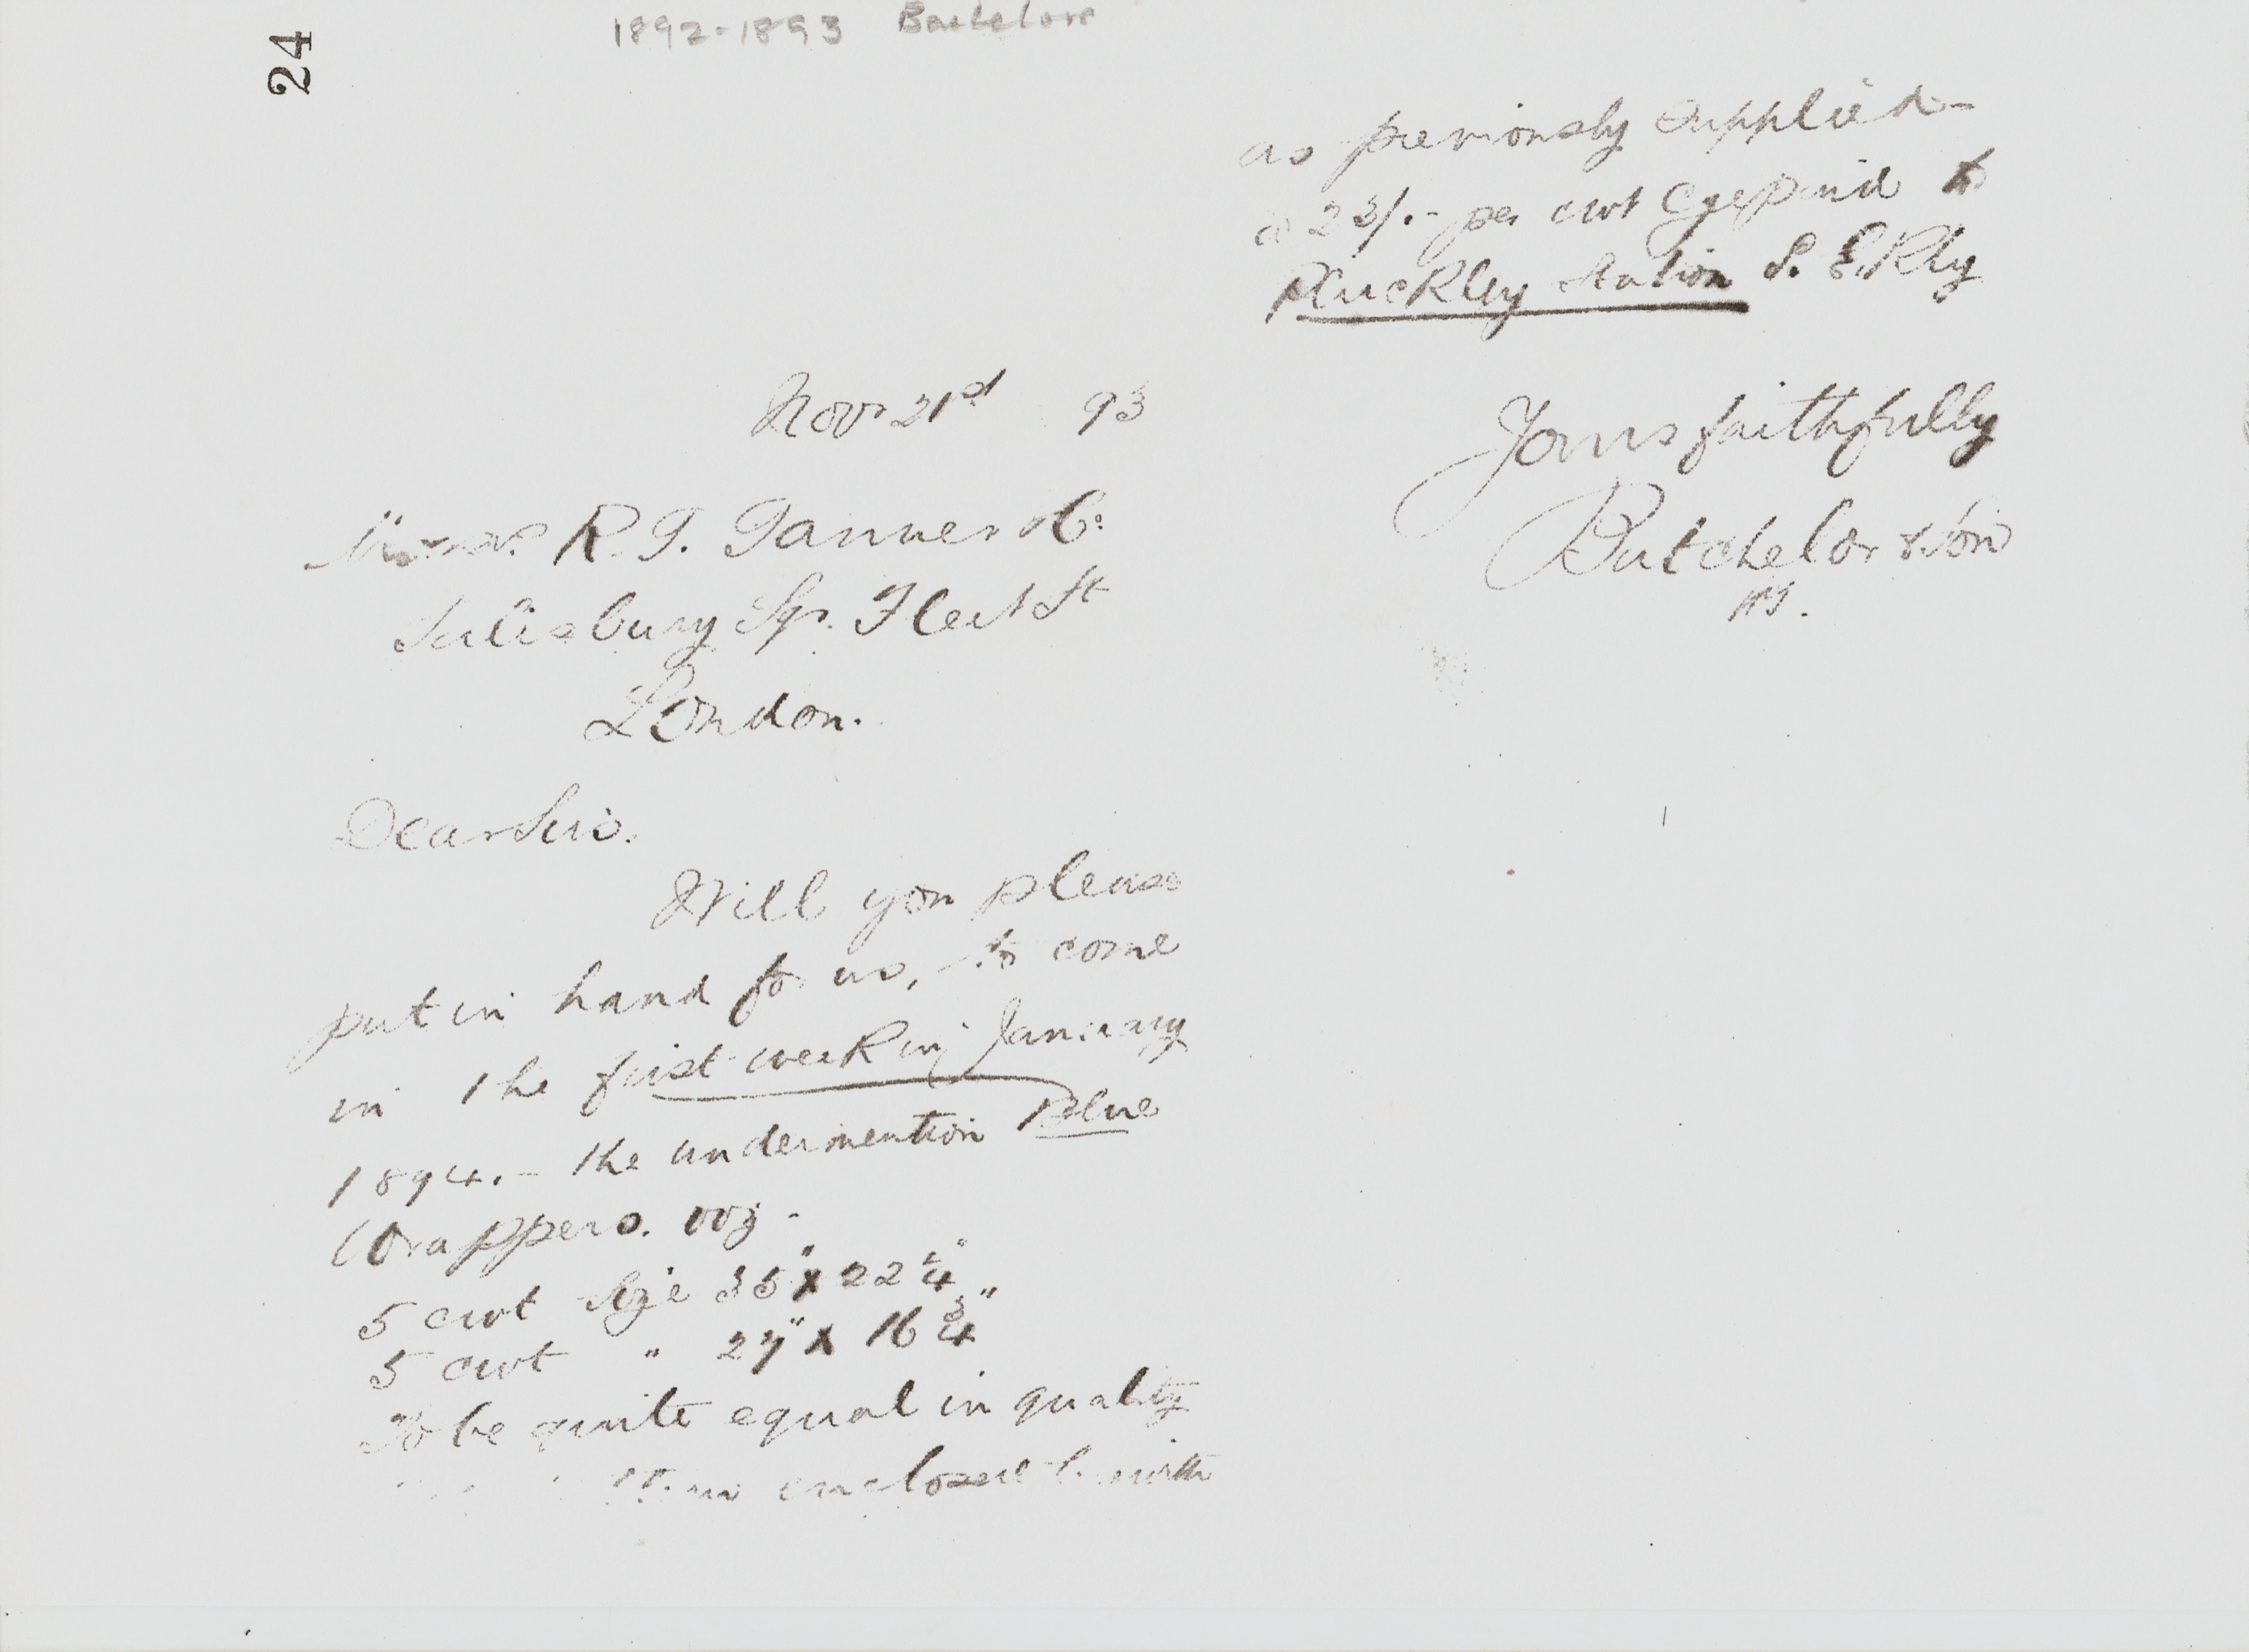 24
1892-1893 Batchelor
Nov 21st 93
Messrs R. T. Tanner & Co
Salisbury Sqr. Fleet St
London.
Dear Sirs.
Will you please
put in hand for us, to come
in the first week in January
1894. - the undermention Blue
Wrappers. viz -
5 cwt Size 35" x 22 1/4"
5 cwt " 27" x 16 3/4"
To be quite equal in quality
enclosed herewith
as previously supplied -
@ 22/.- per cwt Cge paid to
Pluckley Station S. E. Rly
Yours faithfully
Batchelor & Son